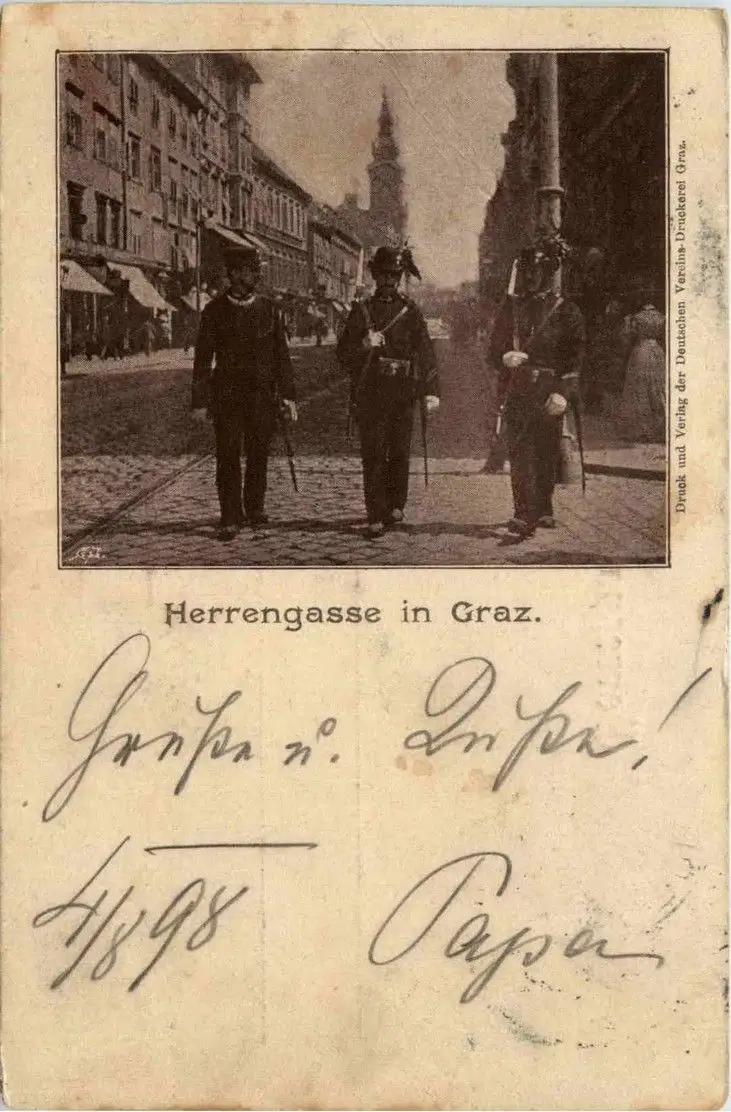 Druck und Verlag der Deutschen Vereins-Druckerei Graz.
Herrengasse in Graz.
Grüße u. Küße!
4/8 98
Papa